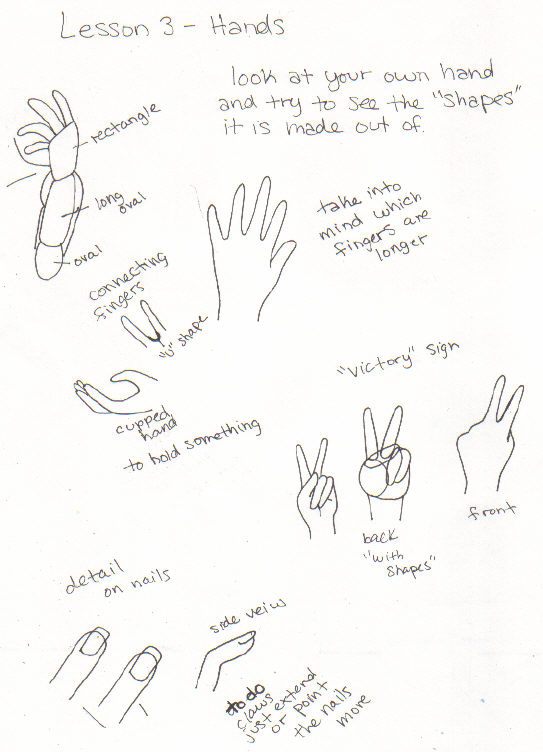 Lesson 3 - Hands
look at your own hand
and try to see the "shapes"
it is made out of.
rectangle
long
oval
oval
take into
mind which
fingers are
longer
connecting
fingers
"U" shape
cupped
hand
to hold something
"Victory" sign
back
"with
shapes"
front
detail
on nails
side veiw
to do
claws
just extend
or point
the nails
more